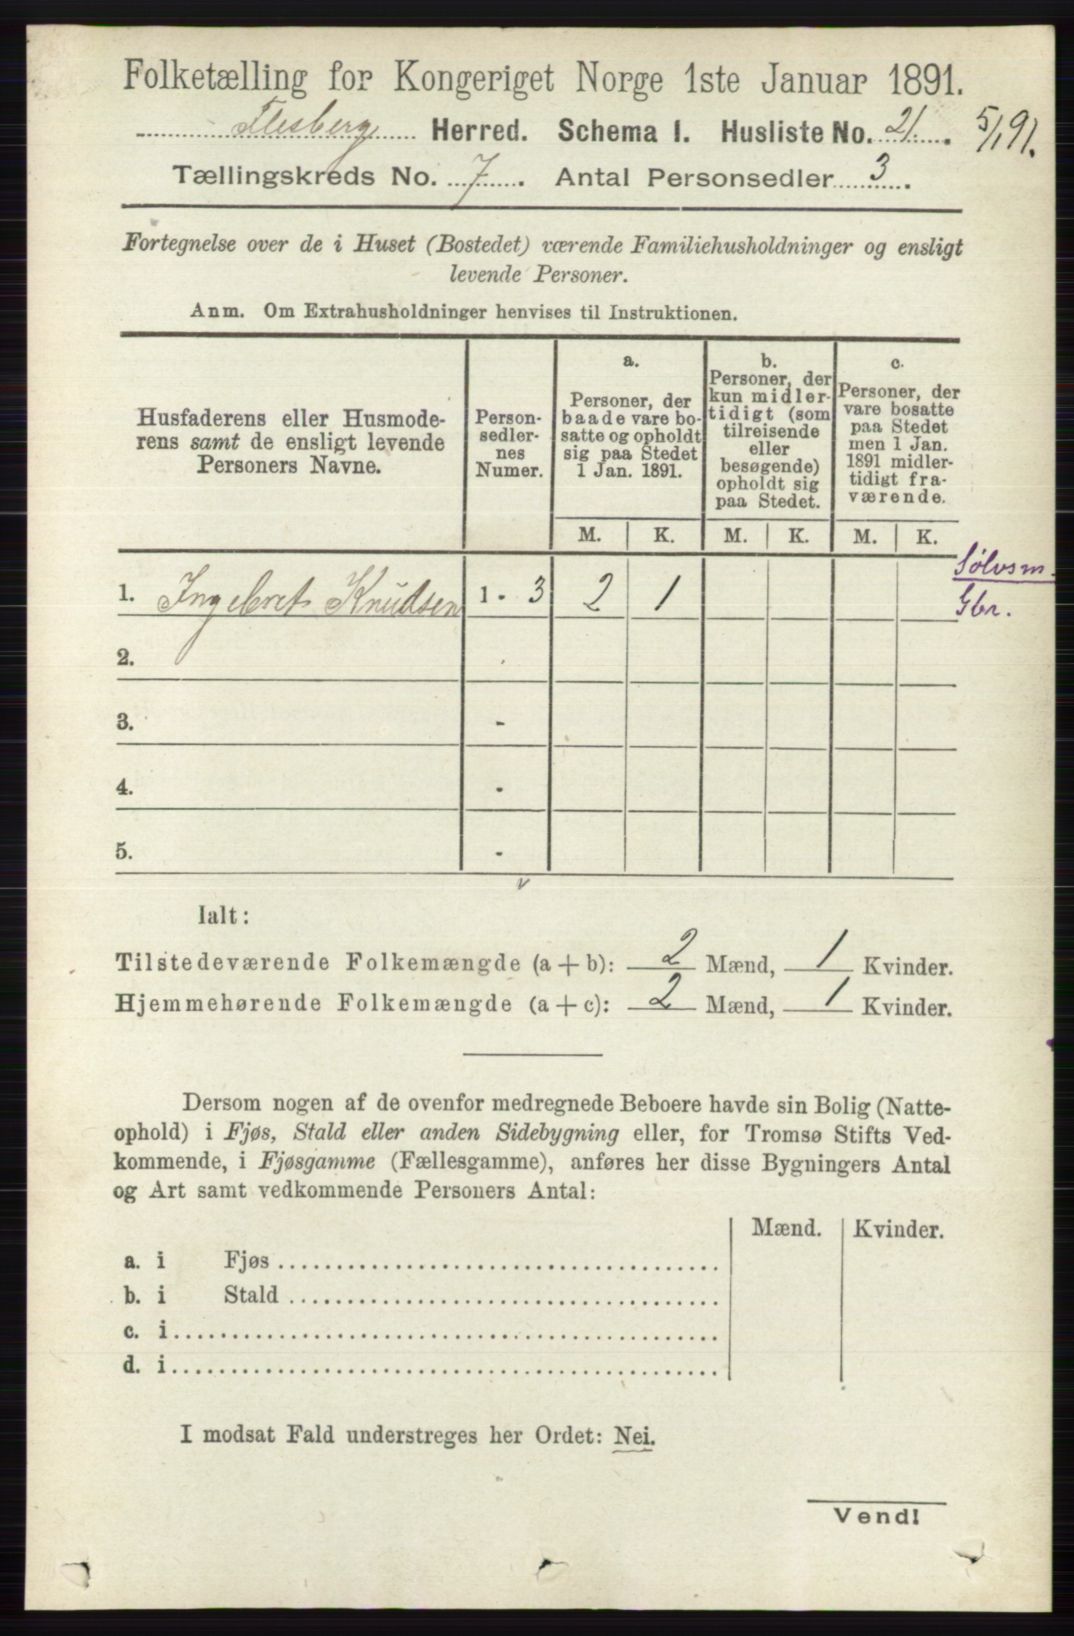 Folketælling for Kongeriget Norge 1ste Januar 1891.
Flesberg Herred. Schema I. Husliste No. 21. 5/1 91.
Tællingskreds No. 7. Antal Personsedler 3.
Fortegnelse over de i Huset (Bostedet) værende Familiehusholdninger og ensligt
levende Personer.
Anm. Om Extrahusholdninger henvises til Instruktionen.
Husfaderens eller Husmode-
rens samt de ensligt levende
Personers Navne.
Person-
sedler-
nes
Numer.
a.
Personer, der
baade vare bo-
satte og opholdt
sig paa Stedet
1 Jan. 1891.
b.
Personer, der
kun midler-
tidigt (som
tilreisende
eller
besøgende)
opholdt sig
paa Stedet.
c.
Personer, der
vare bosatte
paa Stedet
men 1 Jan.
1891 midler-
tidigt fra-
værende.
M. K. M. K. M. K.
Sølvsm.
Gbr.
1. Ingebret Knudsen 1 - 3 2 1
2.
3. -
4. -
5. -
Ialt:
Tilstedeværende Folkemængde (a + b): 2 Mænd, 1 Kvinder.
Hjemmehørende Folkemængde (a + c): 2 Mænd, 1 Kvinder.
Dersom nogen af de ovenfor medregnede Beboere havde sin Bolig (Natte-
ophold) i Fjøs, Stald eller anden Sidebygning eller, for Tromsø Stifts Ved-
kommende, i Fjøsgamme (Fællesgamme), anføres her disse Bygningers Antal
og Art samt vedkommende Personers Antal:
Mænd. Kvinder.
a. i Fjøs
b. i Stald
c. i
d. i
I modsat Fald understreges her Ordet: Nei.
Vend!